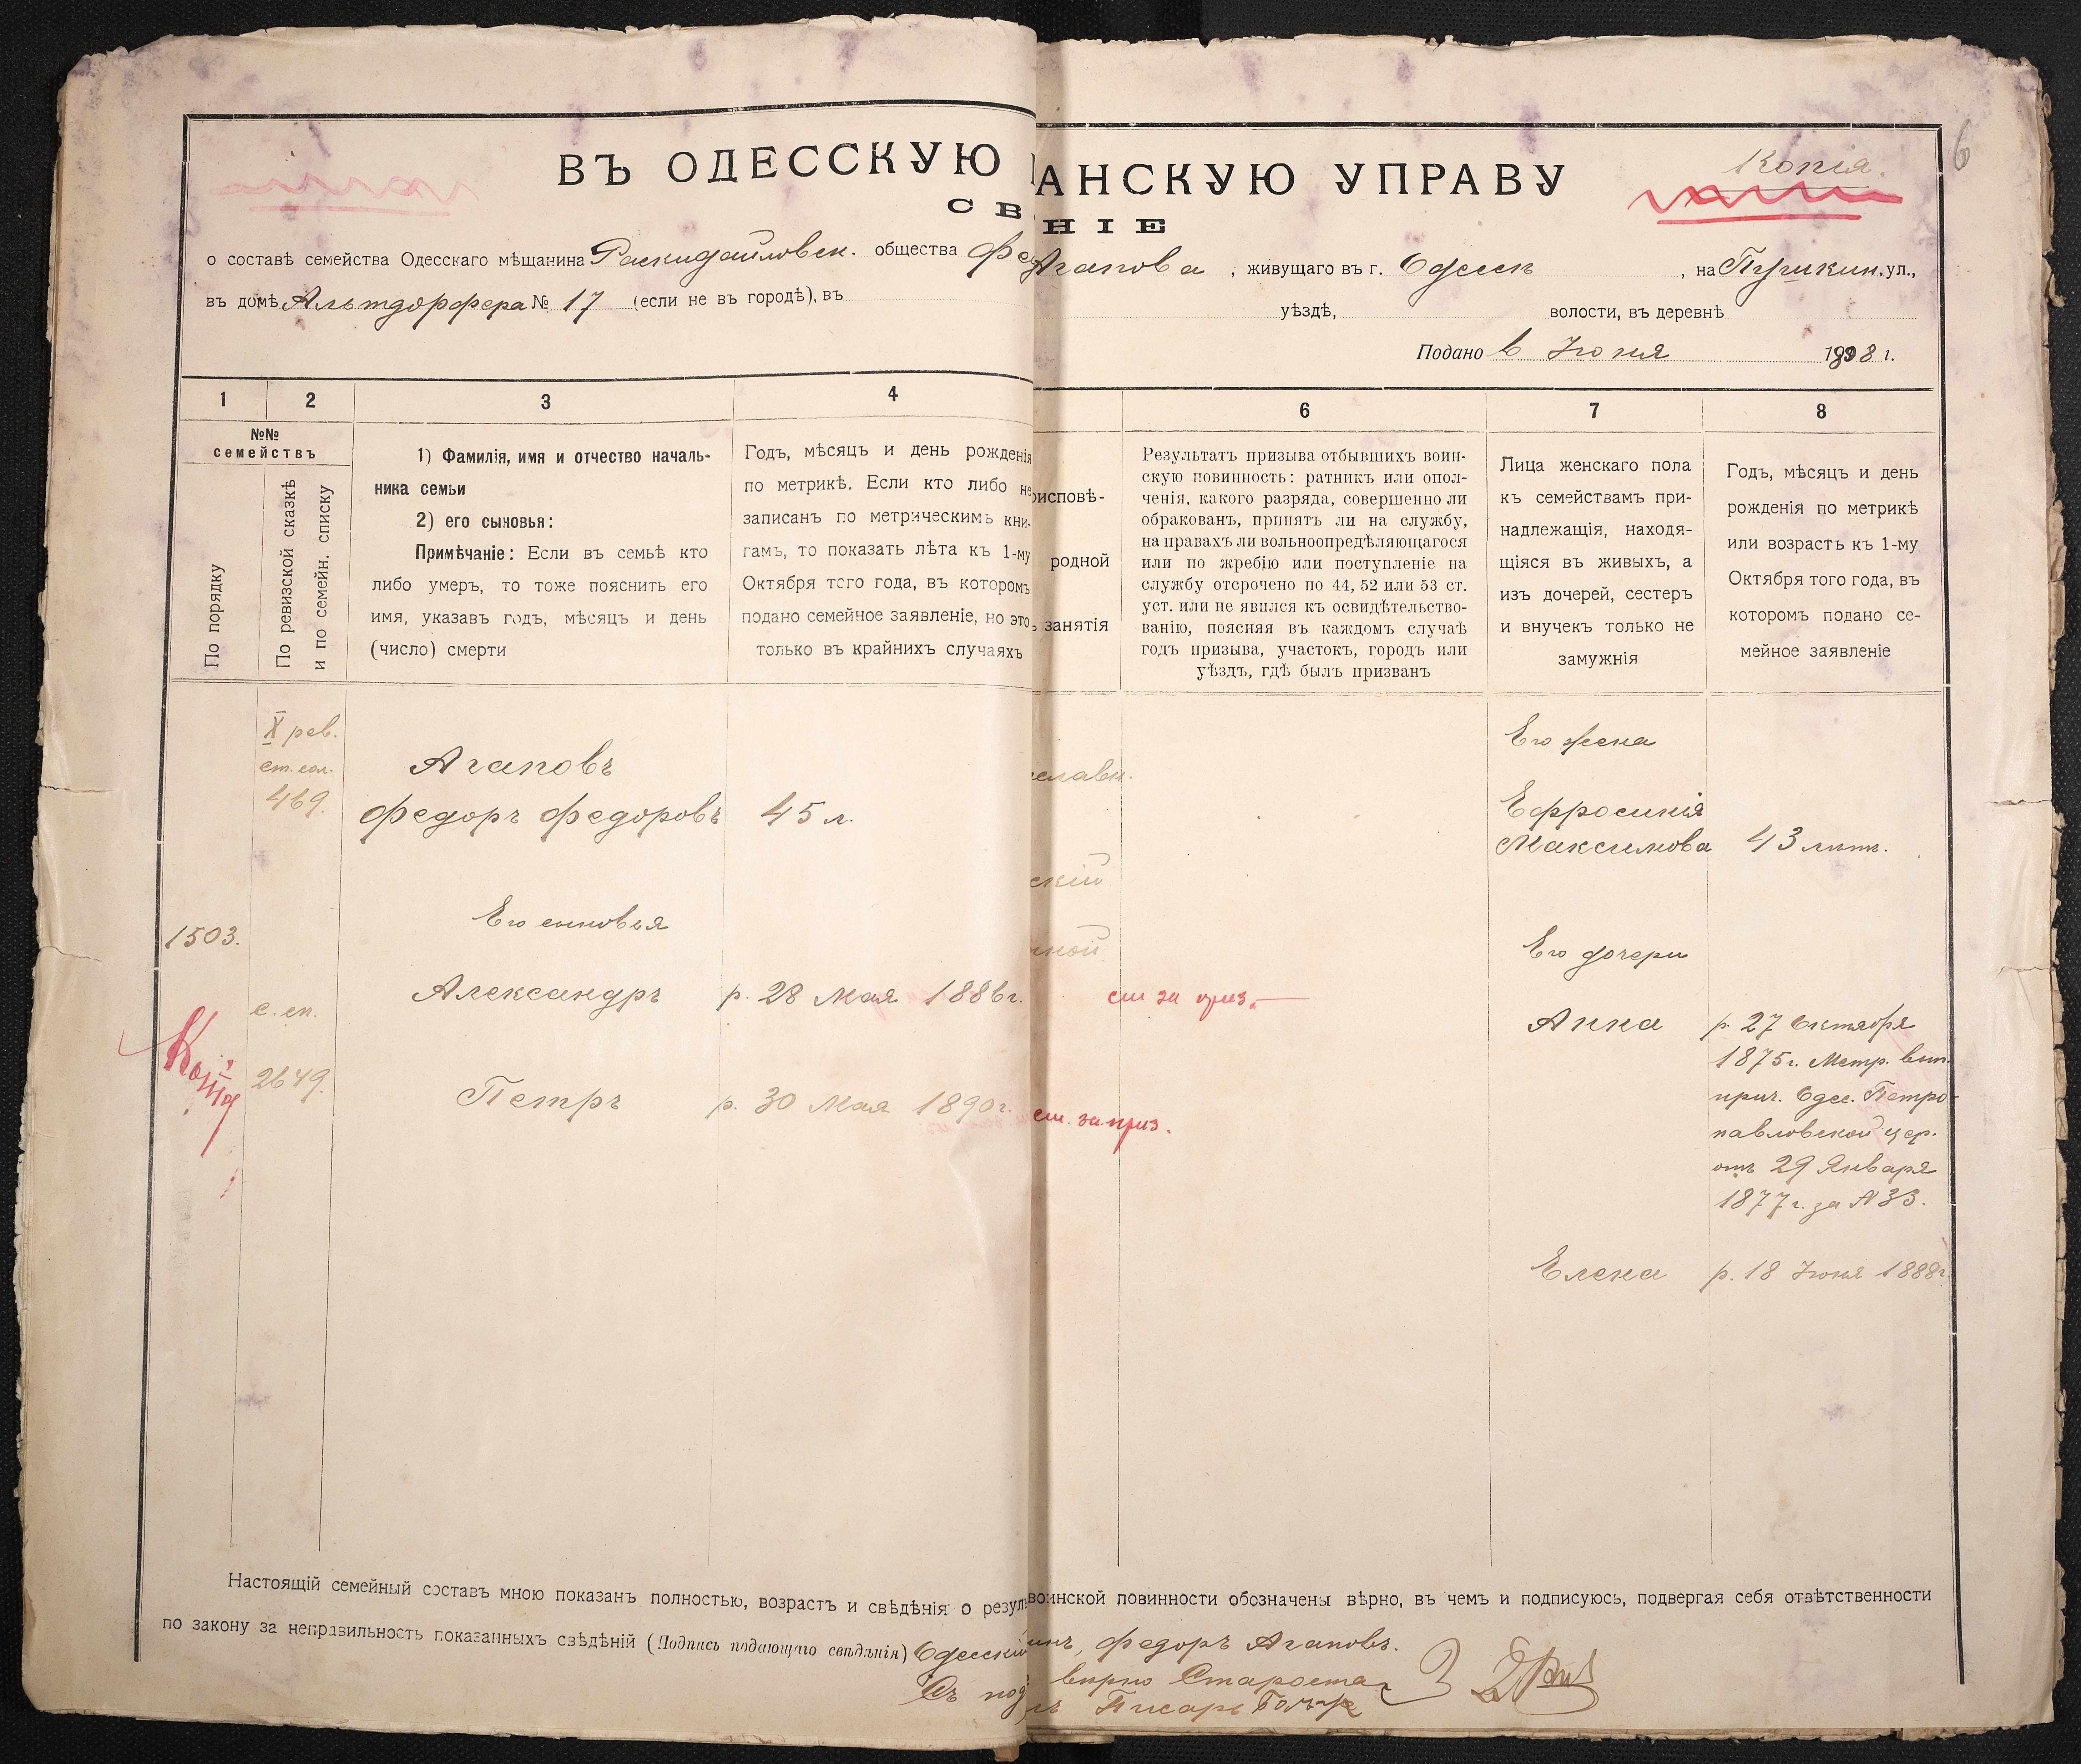 Копія
6
ВЪ ОДЕССКУЮ АНСКУЮ УПРАВУ
СВ НІЕ
о составѣ семейства Одесскаго мѣщанина Раскидайловск. общества Фед Агапова, живущаго въ г. Одессѣ, на Пушкин. ул.,
въ домѣ Альтдорфера № 17 (если не въ городѣ), въ уѣздѣ, волости, въ деревнѣ
Подано 6 Іюня 1898 г.
1 2 3 4 6 7 8
№№ семействъ
По порядку
По ревизской сказкѣ
и по семейн. списку
1) Фамилія, имя и отчество началь-
ника семьи
2) его сыновья:
Примѣчаніе: Если въ семьѣ кто
либо умеръ, то тоже пояснить его
имя, указавъ годъ, мѣсяцъ и день
(число) смерти
Годъ, мѣсяцъ и день рожденія
по метрикѣ. Если кто либо не
записанъ по метрическимъ кни-
гамъ, то показать лѣта къ 1-му
Октября того года, въ которомъ
подано семейное заявленіе, но это
только въ крайнихъ случаяхъ
исповѣ-
родной
занятія
Результатъ призыва отбывшихъ воин-
скую повинность: ратникъ или опол-
ченія, какого разряда, совершенно ли
обракованъ, принятъ ли на службу,
на правахъ ли вольноопредѣляющагося
или по жребію или поступленіе на
службу отсрочено по 44, 52 или 53 ст.
уст. или не явился къ освидѣтельство-
ванію, поясняя въ каждомъ случаѣ
годъ призыва, участокъ, городъ или
уѣздъ, гдѣ былъ призванъ
Лица женскаго пола
къ семействамъ при-
надлежащія, находя-
щіяся въ живыхъ, а
изъ дочерей, сестеръ
и внучекъ только не
замужнія
Годъ, мѣсяцъ и день
рожденія по метрикѣ
или возрастъ къ 1-му
Октября того года, въ
которомъ подано се-
мейное заявленіе
X рев.
469.
Агаповъ
Федоръ Федоровъ 45 л.
славн.
скій
ной
Его жена
Ефросинія
Максимова 43 лѣтъ.
1503.
Его сыновья
Его дочери
с. сп.
2649.
Копія
Александръ р. 28 Мая 1886 г. см за приз.
Петръ р. 30 Мая 1890 г. см. за приз.
Анна р. 27 Октября
1875 г. Метр. вып.
прич. Одес. Петро-
павловской цер.
отъ 29 Января
1877 г. за № 33.
Елена р. 18 Іюня 1888 г.
Настоящій семейный составъ мною показанъ полностью, возрастъ и свѣдѣнія о резул воинской повинности обозначены вѣрно, въ чемъ и подписуюсь, подвергая себя отвѣтственности
по закону за неправильность показанныхъ свѣдѣній (Подпись подающаго свѣдѣнія) Одесскій инъ, Федоръ Агаповъ.
Съ под вѣрно Староста
Писарь